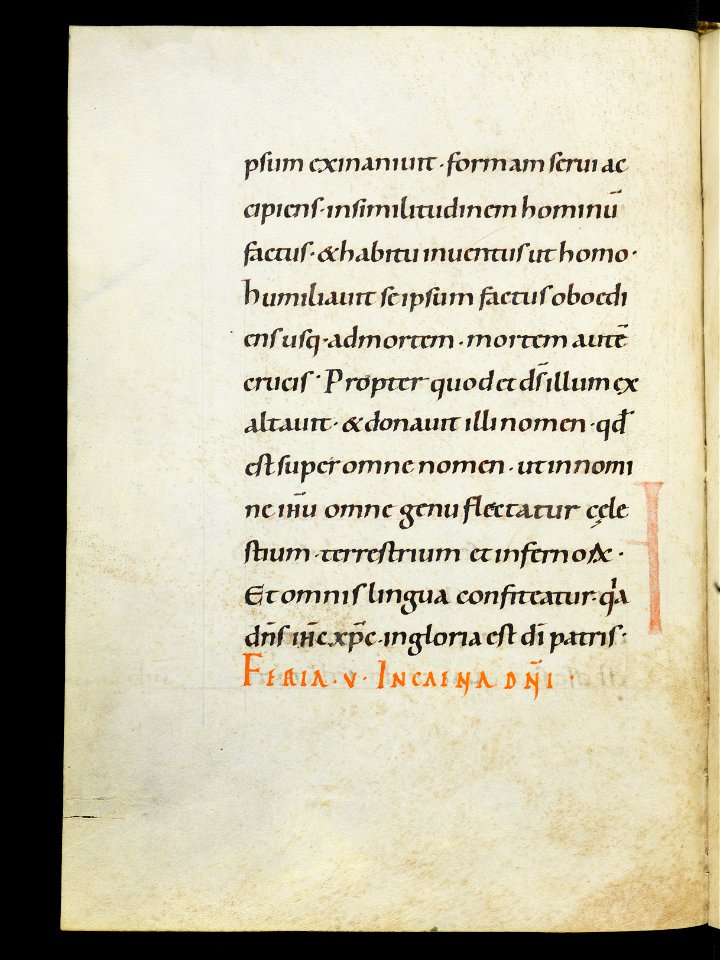 psum exinaniuit · formam serui ac
cipiens · insimilitudinem hominū
factus · & habitu inuentus ut homo ·
humiliauit seipsum factus oboedi
ens usq · admortem · mortem autē
crucis · Propter quod et ds̄ illum ex
altauit · & donauit illi nomen · qđ
est super omne nomen · ut innomi
ne ih̄u omne genu flectatur cęle
stium · terrestrium et infernoꝝ ·
Et omnis lingua confiteatur · qa
dn̄s ih̄c xp̄c · ingloria est dī patris ·
FERIA · V · INCAENA DN̄I ·